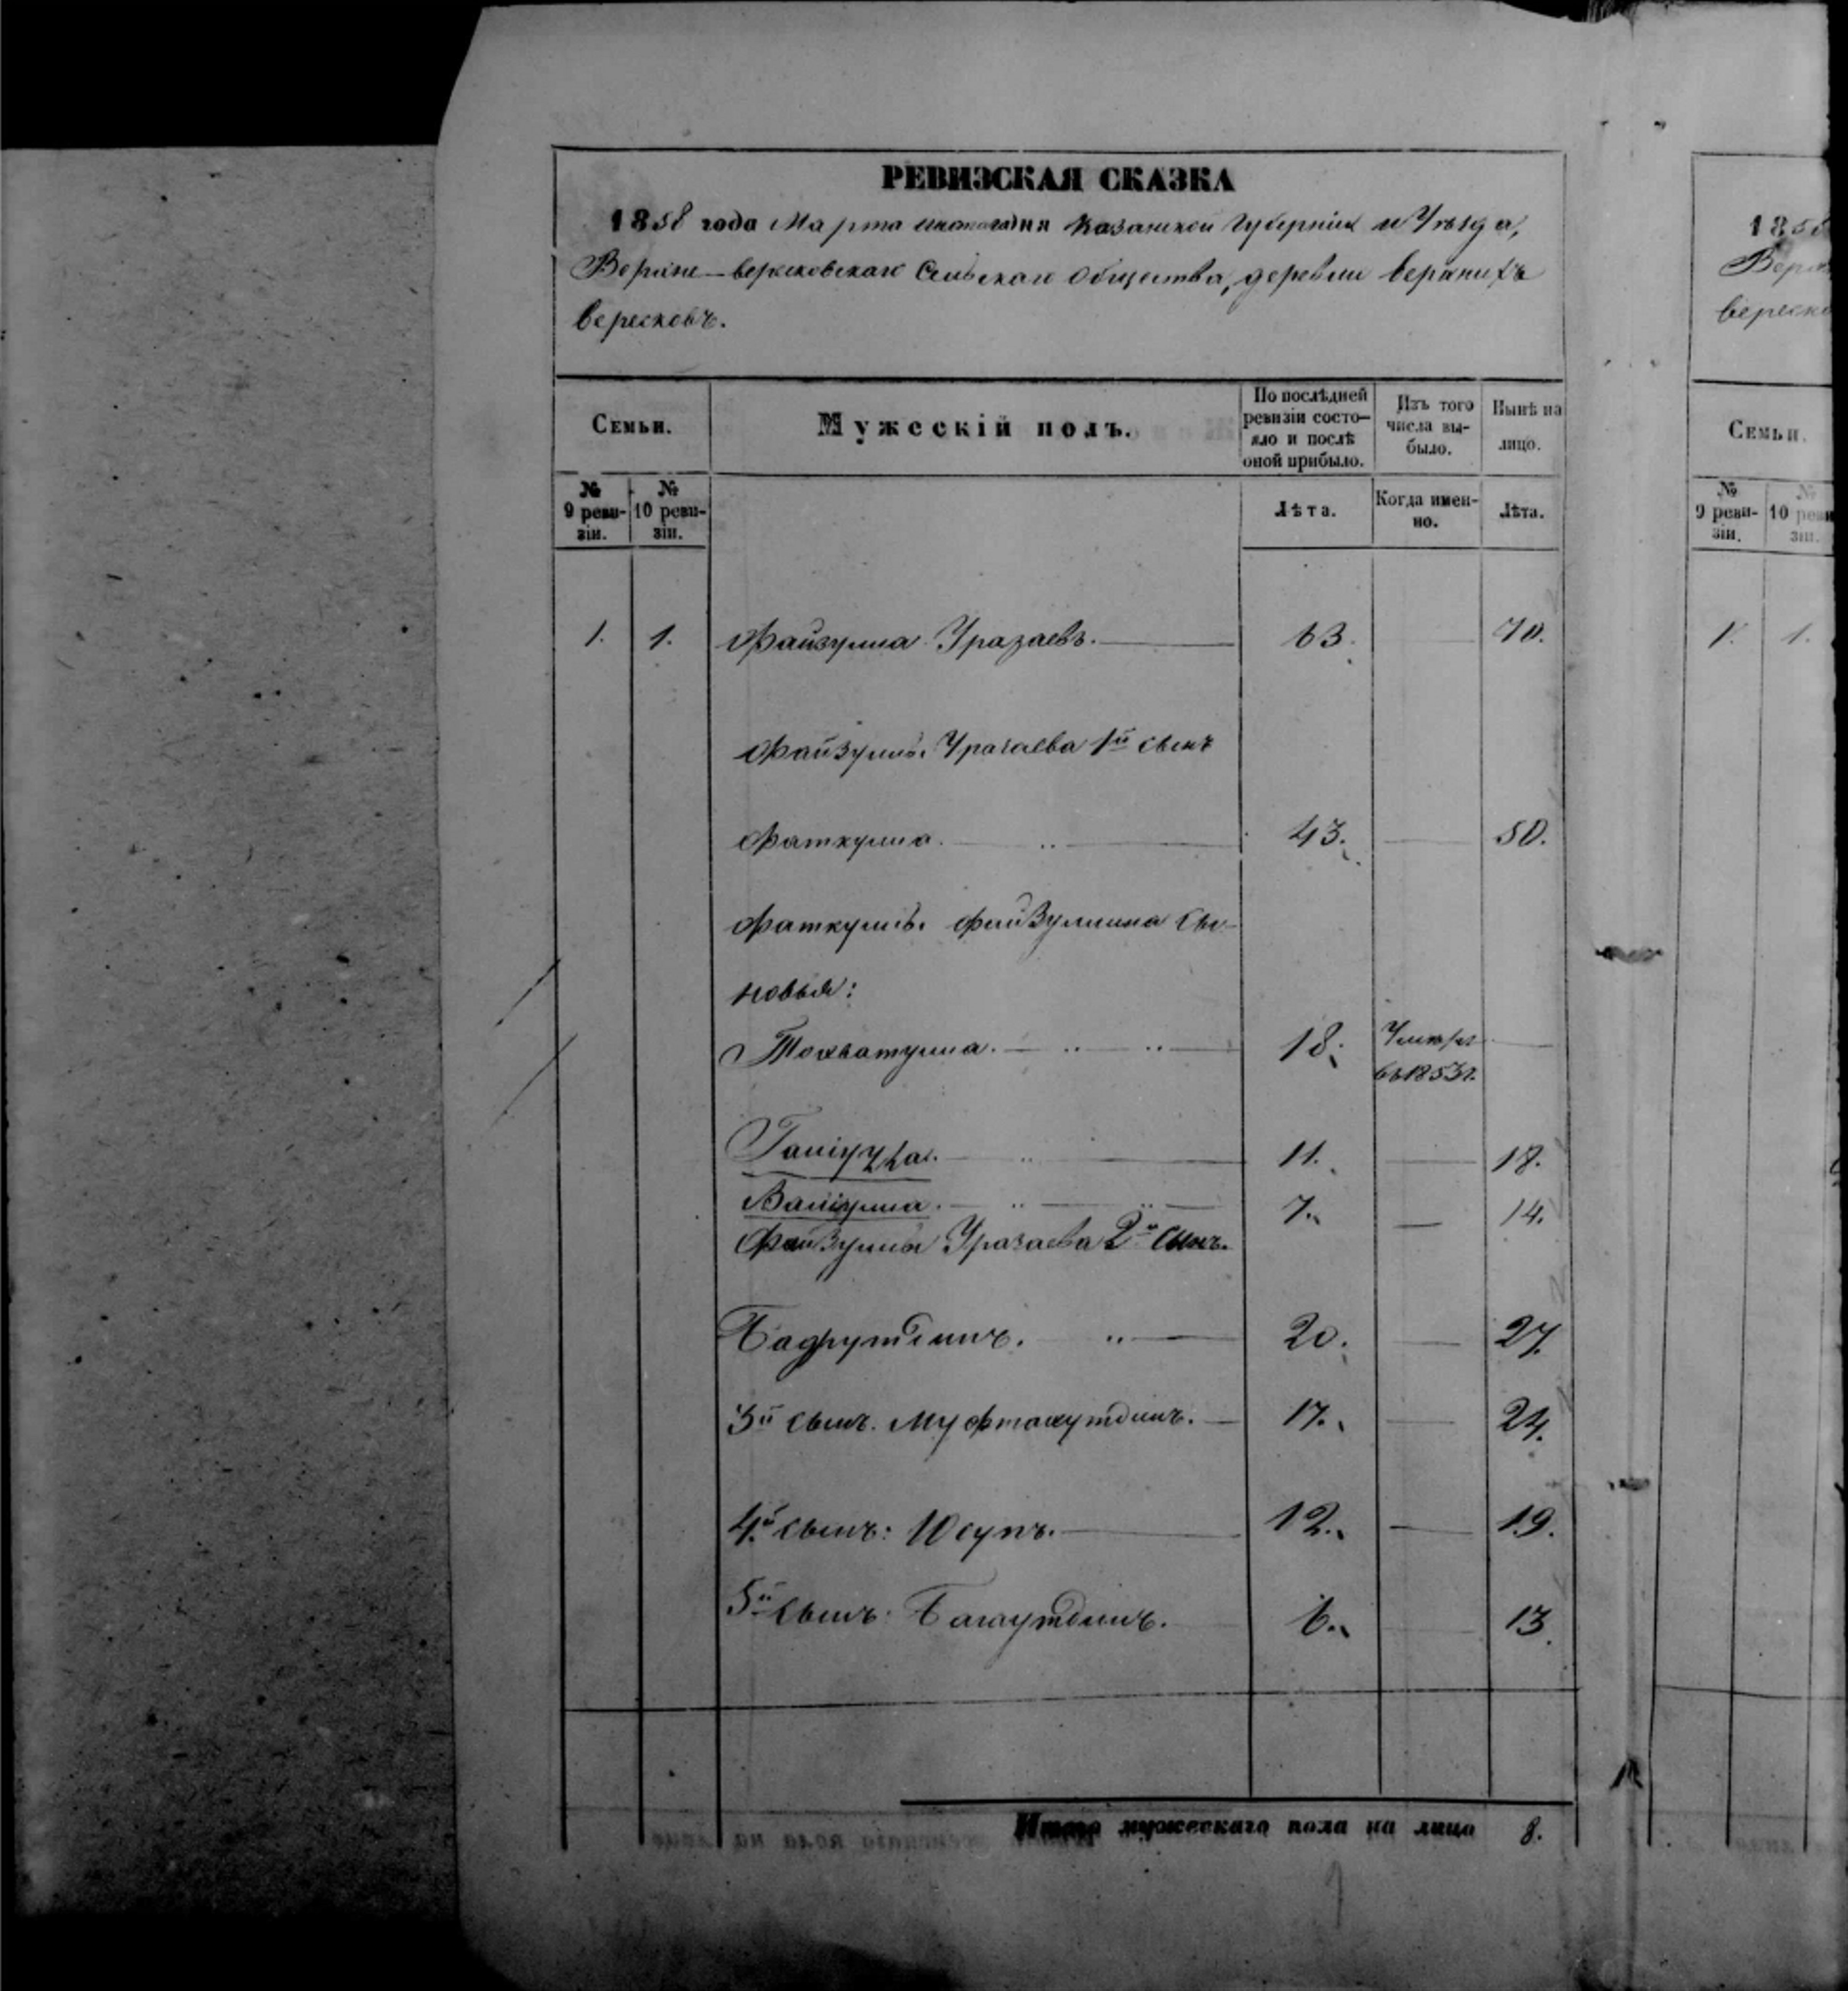 РЕВИЗСКАЯ СКАЗКА
1858 года Марта дня Казанской Губерніи и Уѣзда,
Верхне-вересковскаго Сельскаго Общества, деревни Верхнихъ
Вересковъ.
Семьи.
Мужескій полъ.
По послѣдней ревизіи состо-
яло и послѣ оной прибыло.
Изъ того числа вы-
было.
Нынѣ на лицо.
№ 9 реви-
зіи.
№ 10 реви-
зіи.
Лѣта.
Когда имен-
но.
Лѣта.
1. 1. Файзулла Уразаевъ. 63. 70.
Файзуллы Уразаева 1й сынъ
Фаткулла. 43. 50.
Фаткуллы Файзуллина сы-
новья:
Тохватулла. 18. Умеръ
въ 1853 г.
11. 18.
Валіулла. 7. 14.
Файзуллы Уразаева 2й сынъ.
Бадрутдинъ. 20. 27.
3й сынъ. Муфтахутдинъ. 17. 24.
4й сынъ: Юсупъ. 12. 19.
5й сынъ: Багаутдинъ. 6. 13.
Итого мужескаго пола на лицо 8.
1858
Верх
вереско
Семьи.
№ 9 реви-
зіи.
№ 10 реви
зіи.
1. 1.